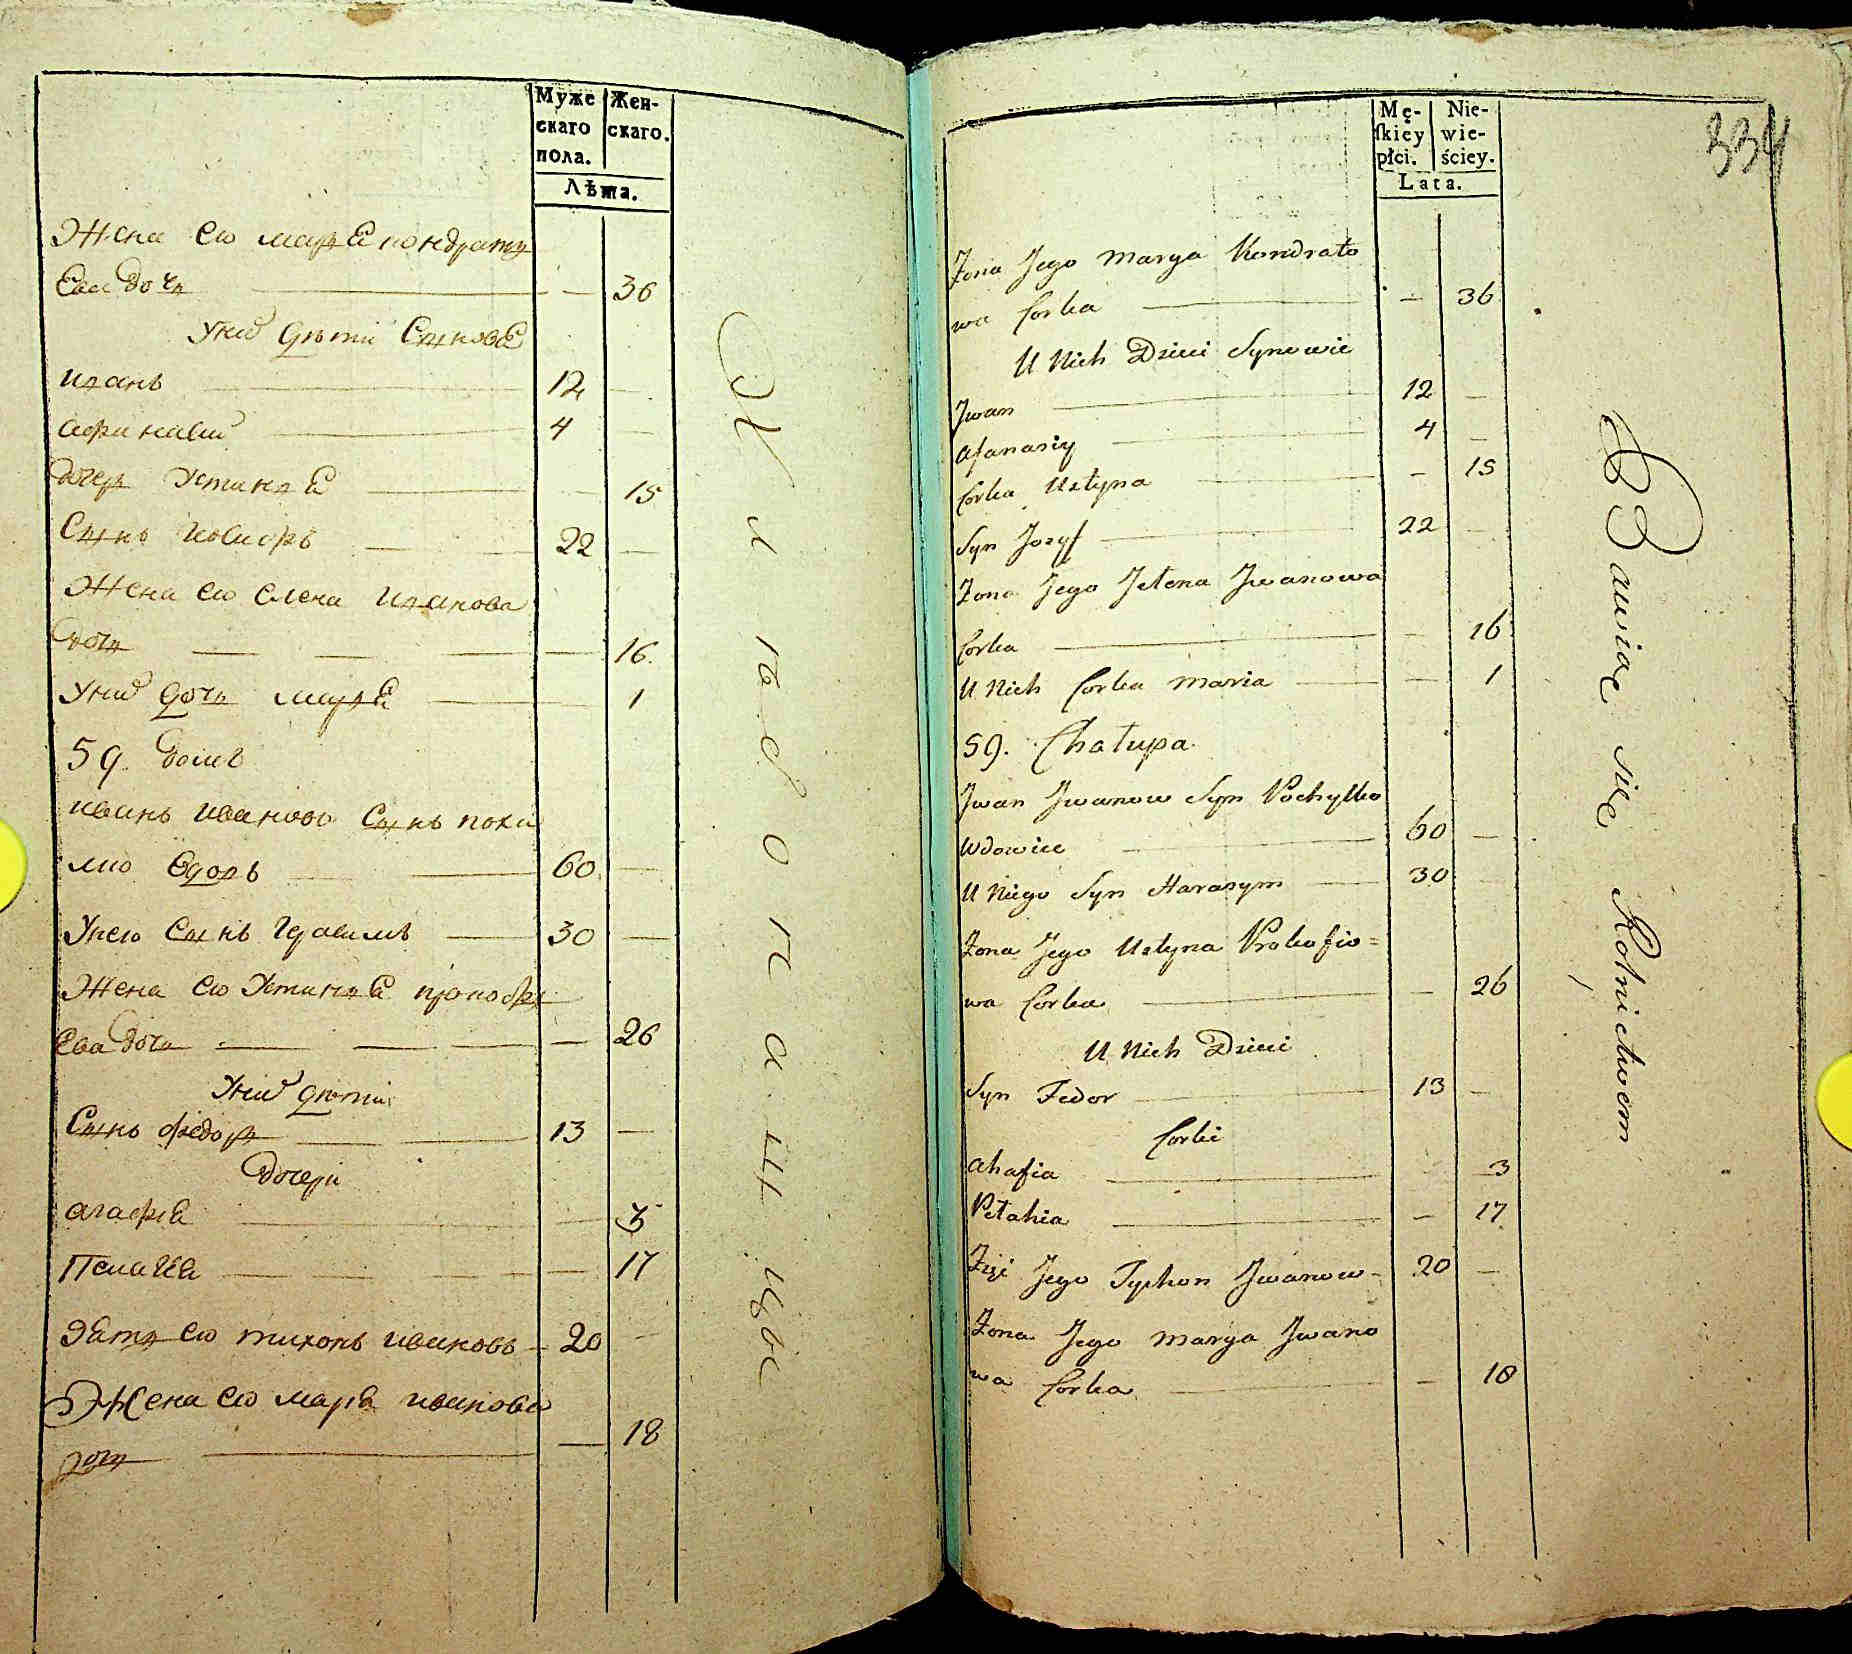 Муже
скаго
пола.
Жен-
скаго.
Лѣта.
Жена ею марѣя кондрату
Ева дочь — — 36
Унихъ дѣти Сынове
иванъ — 12 —
афанасий — 4 —
дочеръ Устинѣя — — 15
Сынъ иосифъ — 22 —
Жена ею елена иванова
дочь — — 16.
Унихъ дочь марѣя — — 1
59. домъ
иванъ ивановъ Сынъ похи
лко вдовъ — 60 —
Унею Сынъ герасимъ — 30 —
Жена ею Устинѣя прокофи
ева дочь — — 26
Унихъ дѣти
Сынъ федоръ — 13 —
дочери
агафѣя — — 3
Пелагѣя — — 17
Зять ею тихонъ ивановъ — 20 —
Жена ею марѣя иванова
дочь — — 18
Живо пашцы
Mę-
ſkiey
płci.
Nie-
wie-
ściey.
Lata.
334
Żona Jego Marya Kondrato
wa Corka — — 36
U Nich Dzieci Synowie
Jwan — 12 —
Afanasiy — 4 —
Corka Ustyna — — 15
Syn Jozyf — 22 —
Żona Jego Jełena Jwanowa
Corka — — 16
U Nich Corka Maria — — 1
59. Chałupa
Jwan Jwanow Syn Pochyłko
Wdowiec — 60 —
U Niego Syn Harasym — 30 —
Żona Jego Ustyna Prokofio=
wa Corka — — 26
U Nich Dzieci
Syn Fedor — 13 —
Corki
Ahafia — 3
Pełahia — — 17
Zięć Jego Tychon Jwanow — 20 —
Żona Jego Marya Jwano
wa Corka — — 18
Bawiąc się Rolnictwem